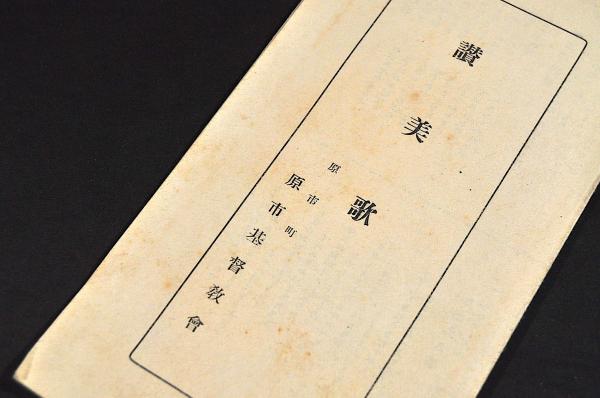 讃美歌
原市町
原市基督教會